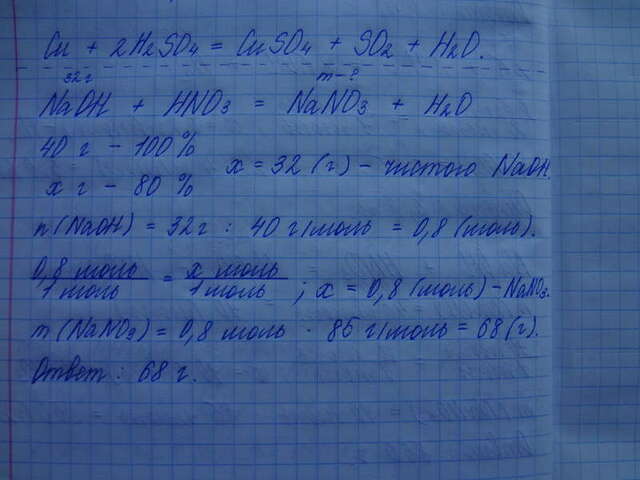 Cu + 2H2SO4 = CuSO4 + SO2 + H2O.
32 г m - ?
NaOH + HNO3 = NaNO3 + H2O
40 г - 100 %
x = 32 (г) - чистого NaOH.
x г - 80 %
n (NaOH) = 32 г : 40 г/моль = 0,8 (моль).
0,8 моль / 1 моль = x моль / 1 моль ; x = 0,8 (моль) - NaNO3.
m (NaNO3) = 0,8 моль · 85 г/моль = 68 (г).
Ответ : 68 г.